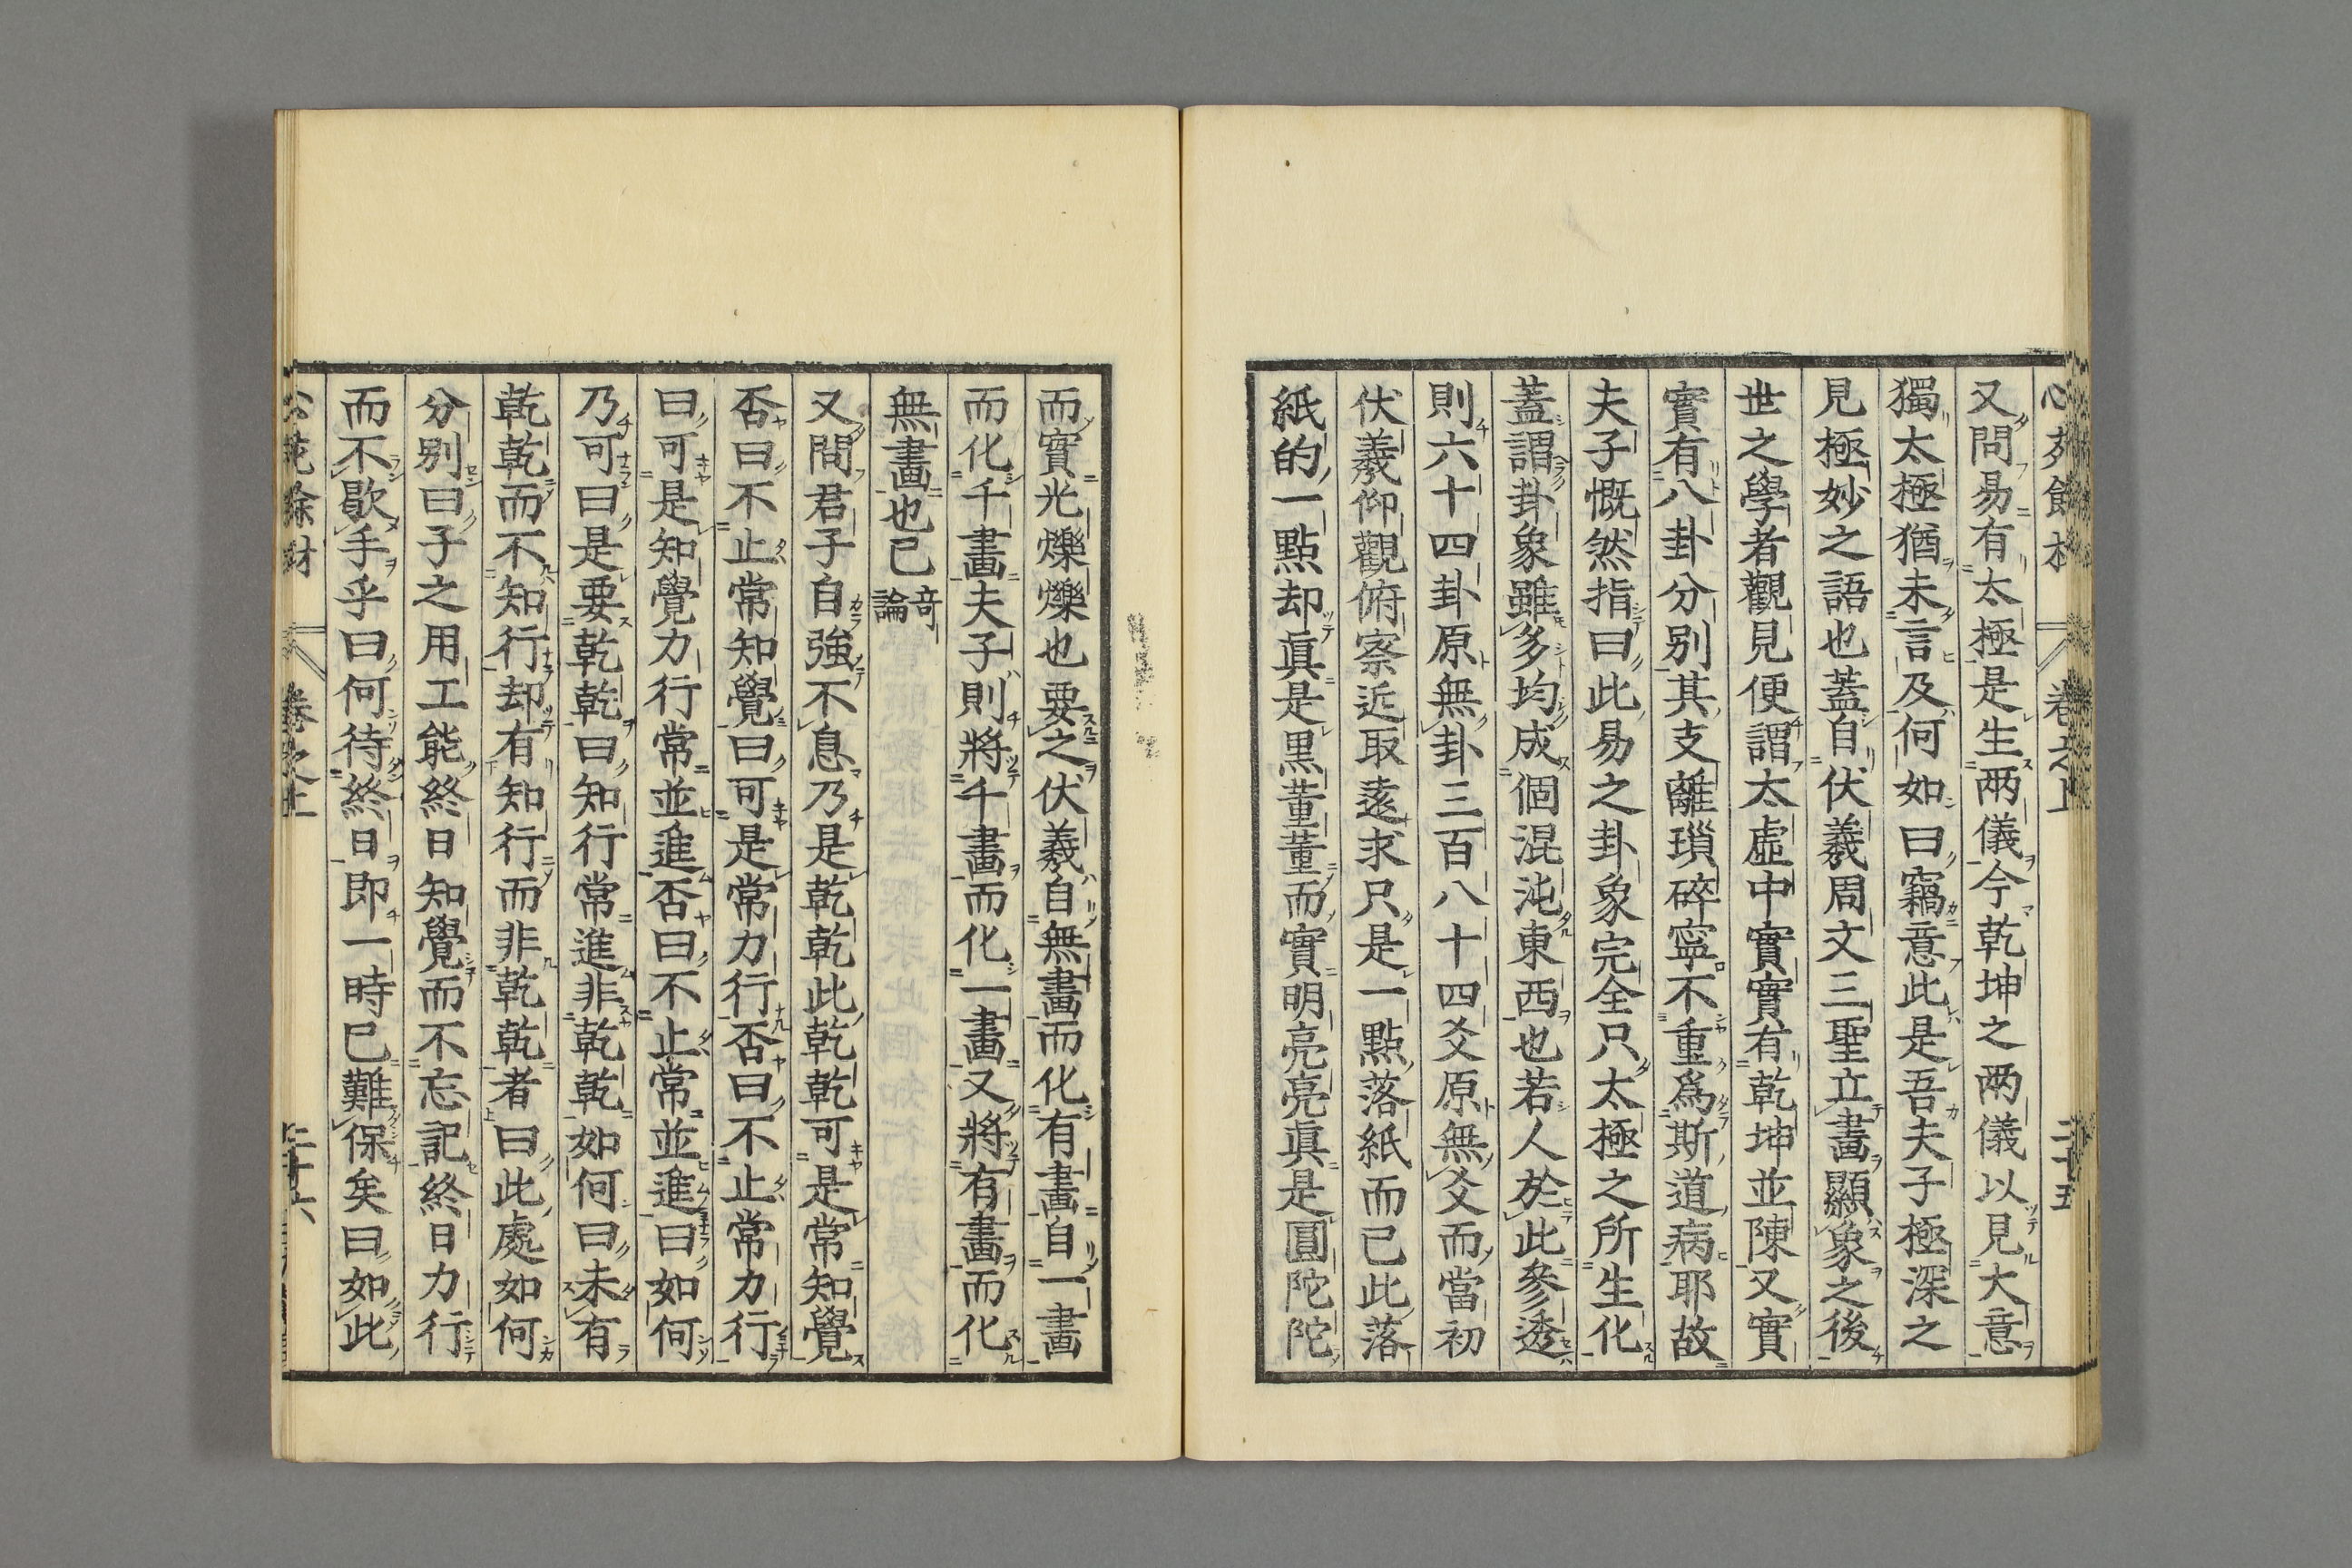 又問易有太極是生兩儀今乾坤之兩儀以見大意
獨太極猶未言及何如曰竊意此是吾夫子極深之
見極妙之語也蓋自伏羲周文三聖立畫顯象之後
世之學者觀見便謂太虛中實實有乾坤並陳又實
實有八卦分別其支離瑣碎寧不重爲斯道病耶故
夫子慨然指曰此易之卦象完全只太極之所生化
蓋謂卦象雖多均成個混沌東西也若人於此參透
則六十四卦原無卦三百八十四爻原無爻而當初
伏羲仰觀俯察近取遠求只是一點落紙而已此落
紙的一點却眞是黑董董而實明亮亮眞是圓陀陀
而實光爍爍也要之伏羲自無畫而化有畫自一畫
而化千畫夫子則將千畫而化一畫又將有畫而化
無畫也已
奇論
又問君子自強不息乃是乾乾此乾乾可是常知覺
否曰不止常知覺曰可是常力行否曰不止常力行
曰可是知覺力行常並進否曰不止常並進曰如何
乃可曰是要乾乾曰知行常進非乾乾如何曰未有
乾乾而不知行却有知行而非乾乾者曰此處如何
分別曰子之用工能終日知覺而不忘記終日力行
而不歇手乎曰何待終日即一時已難保矣曰如此
卷之上
二十六